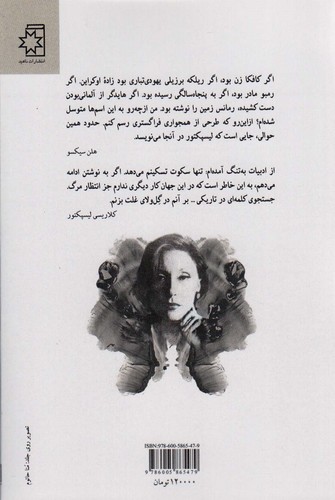 انتشارات ناهید
اگر کافکا زن بود، اگر ریلکه برزیلی یهودی‌تباری بود زادهٔ اوکراین. اگر
رمبو مادر بود، اگر به پنجاه‌سالگی رسیده بود. اگر هایدگر از آلمانی‌بودن
دست کشیده، رمانس زمین را نوشته بود. من ازچه‌رو به این اسم‌ها متوسل
شده‌ام؟ ازاین‌رو که طرحی از همجواری فراگستری رسم کنم. حدود همین
حوالی، جایی است که لیسپکتور در آنجا می‌نویسد.
هلن سیکسو
از ادبیات به‌تنگ آمده‌ام: تنها سکوت تسکینم می‌دهد. اگر به نوشتن ادامه
می‌دهم، به این خاطر است که در این جهان کار دیگری ندارم جز انتظار مرگ.
جستجوی کلمه‌ای در تاریکی .. بر آنم در گل‌ولای غلت بزنم.
کلاریسی لیسپکتور
تصویر روی جلد: ثنا حانوم
ISBN: 978-600-5865-47-9
9 786005 865479
۱۲۰۰۰۰ تومان